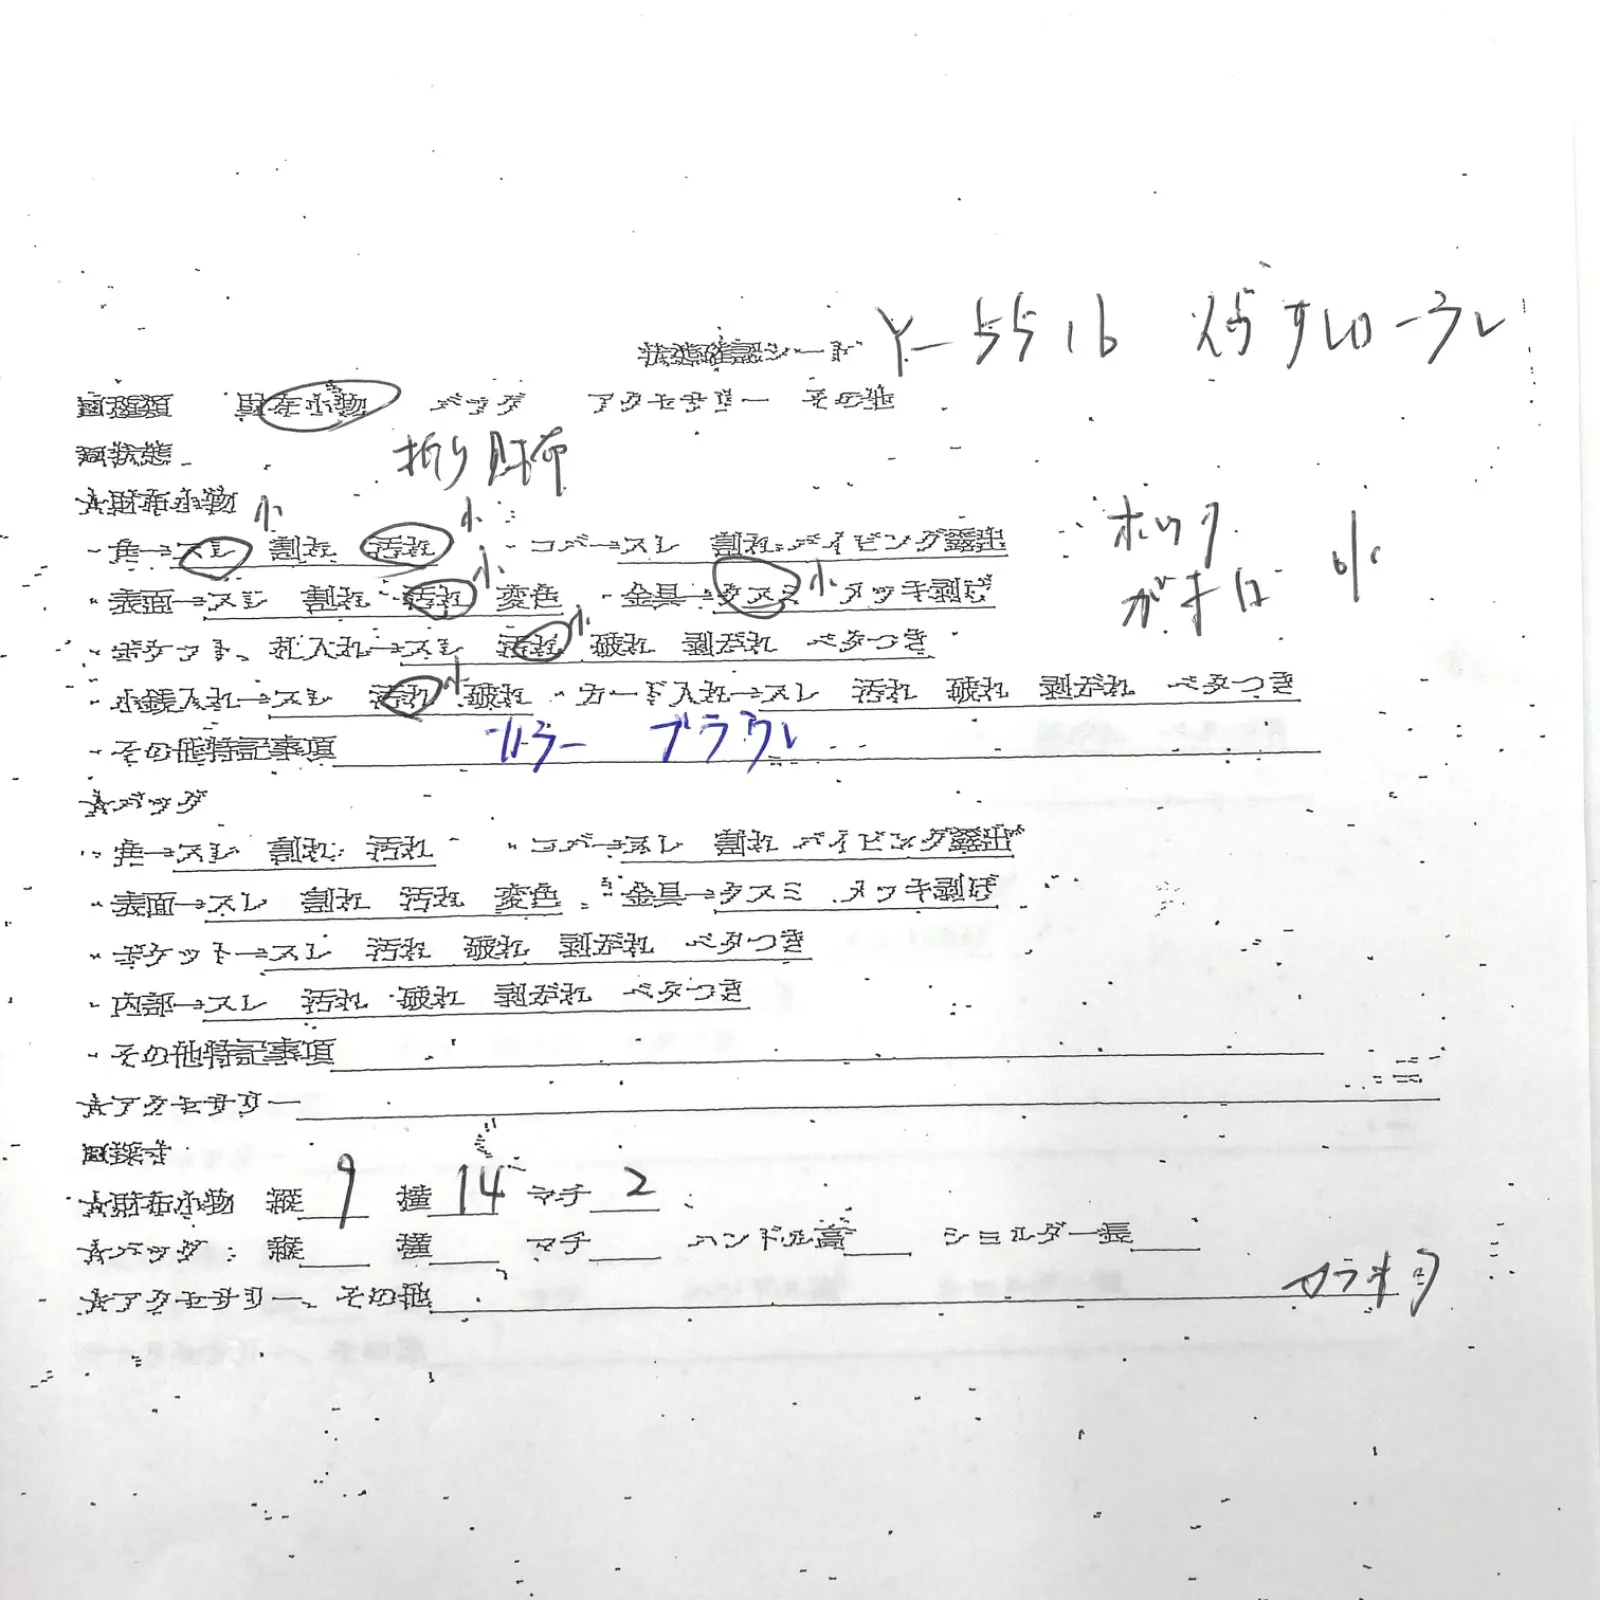 状態確認シート Y-5516
□種類 財布小物 バッグ アクセサリー その他
□状態 折り財布
☆財布小物
・角→スレ 小 割れ 汚れ 小 ・コバ→スレ 割れ パイピング露出 ホック
・表面→スレ 割れ 汚れ 小 変色 ・金具→クスミ 小 メッキ剥げ 小
・ポケット、札入れ→スレ 汚れ 小 破れ 剥がれ ベタつき
・小銭入れ→スレ 汚れ 小 破れ ・カード入れ→スレ 汚れ 破れ 剥がれ ベタつき
・その他特記事項 カラー ブラウン
☆バッグ
・角→スレ 割れ 汚れ ・コバ→スレ 割れ パイピング露出
・表面→スレ 割れ 汚れ 変色 ・金具→クスミ メッキ剥げ
・ポケット→スレ 汚れ 破れ 剥がれ ベタつき
・内部→スレ 汚れ 破れ 剥がれ ベタつき
・その他特記事項
☆アクセサリー
□採寸
☆財布小物 縦 9 横 14 マチ 2
☆バッグ 縦 横 マチ ハンドル高 ショルダー長
☆アクセサリー、その他